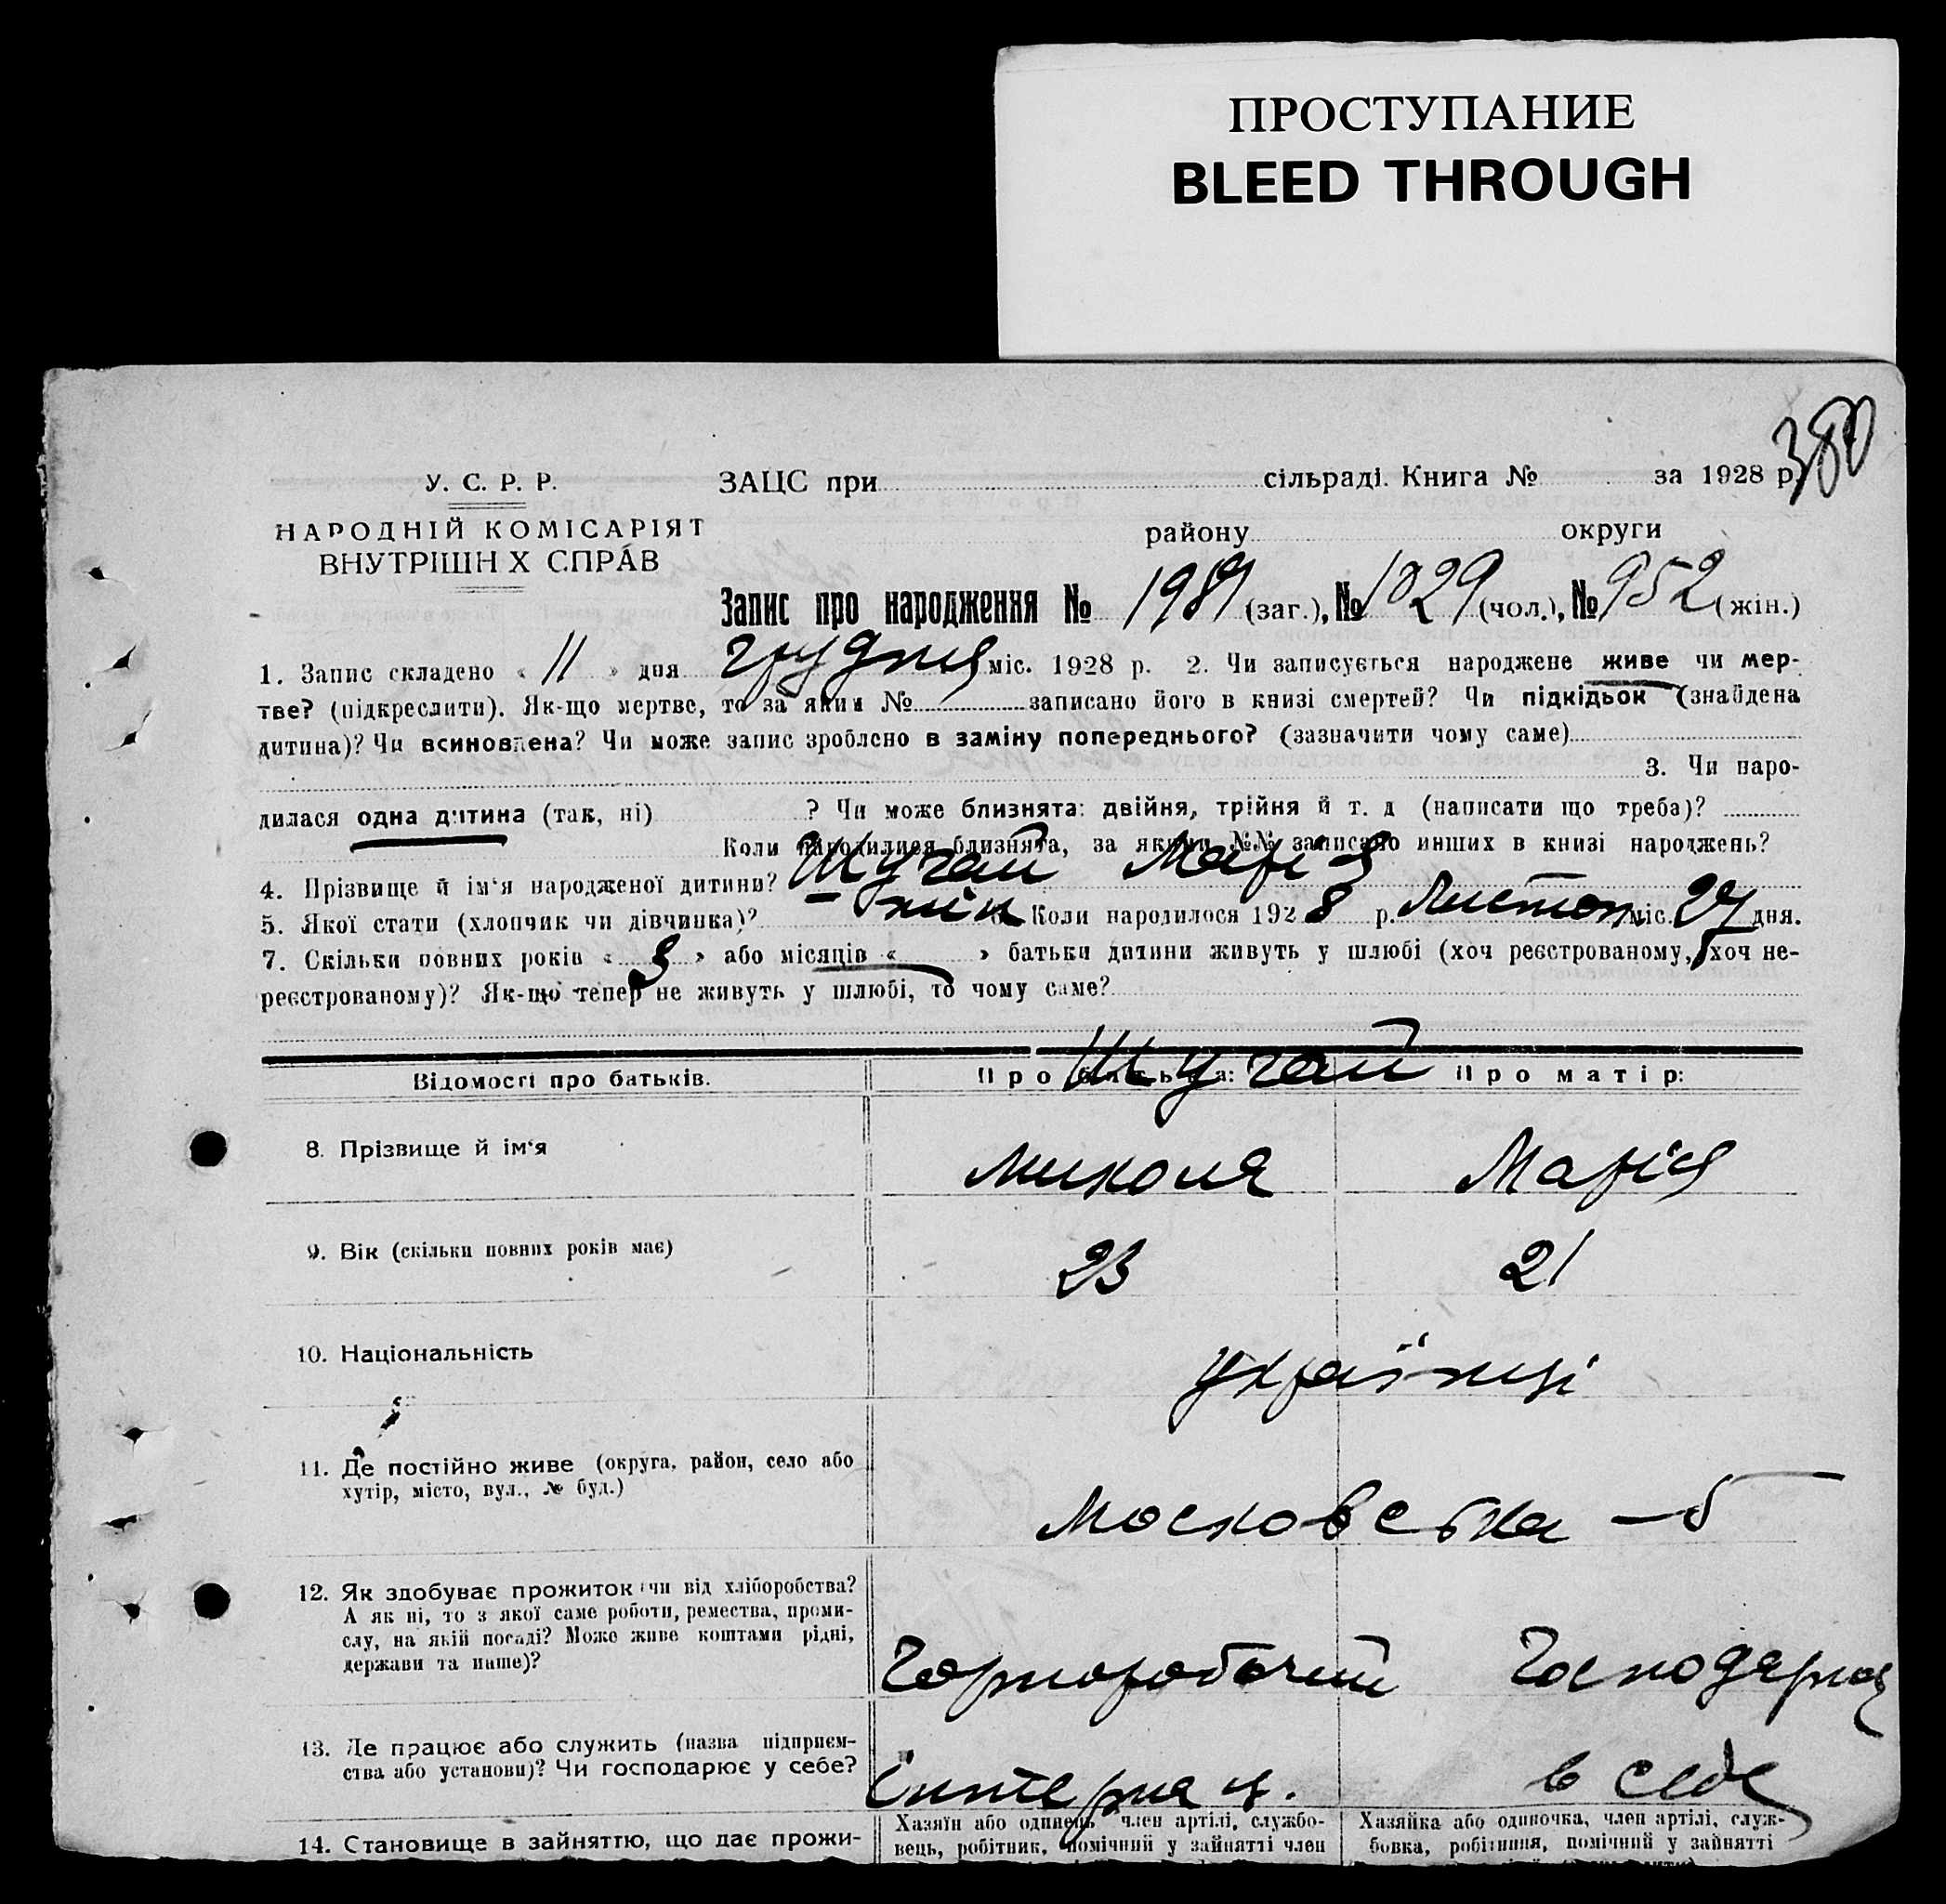 ПРОСТУПАНИЕ
BLEED THROUGH
380
У. С. Р. Р.
НАРОДНІЙ КОМІСАРІЯТ
ВНУТРІШН Х СПРАВ
ЗАЦС при сільраді. Книга № за 1928 р.
району округи
Запис про народження № 1981 (заг.), № 1029 (чол.), № 952 (жін.)
1. Запис складено « 11 » дня грудня міс. 1928 р. 2. Чи записується народжене живе чи мер-
тве? (підкреслити). Як-що мертве, то за яким № записано його в книзі смертей? Чи підкідьок (знайдена
дитина)? Чи всиновлена? Чи може запис зроблено в заміну попереднього? (зазначити чому саме)
3. Чи наро-
дилася одна дитина (так, ні) ? Чи може близнята: двійня, трійня й т. д (написати що треба)?
Коли народилися близнята, за якими №№ записано инших в книзі народжень?
4. Прізвище й ім'я народженої дитини? Шугай Марія
5. Якої стати (хлопчик чи дівчинка)? жін Коли народилося 1928 р. Листоп міс. 27 дня.
7. Скільки повних років « 3 » або місяців « » батьки дитини живуть у шлюбі (хоч реєстрованому, хоч не-
реєстрованому)? Як-що тепер не живуть у шлюбі, то чому саме?
Шугай
Відомості про батьків. Про батька: Про матір:
8. Прізвище й ім'я Микола Марія
9. Вік (скільки повних років має) 23 21
10. Національність українці
11. Де постійно живе (округа, район, село або
хутір, місто, вул., № буд.)
Московська — 5
12. Як здобуває прожиток (чи від хліборобства?
А як ні, то з якої саме роботи, ремества, проми-
слу, на якій посаді? Може живе коштами рідні,
держави та инше)?
Чорноробочий Господарка
13. Де працює або служить (назва підприєм-
ства або установи)? Чи господарює у себе?
в себе
14. Становище в зайняттю, що дає прожи-
Хазяїн або одинець член артілі, службо-
вець, робітник, помічний у зайнятті член
Хазяйка або одиночка, член артілі, служ-
бовка, робітниця, помічний у зайнятті